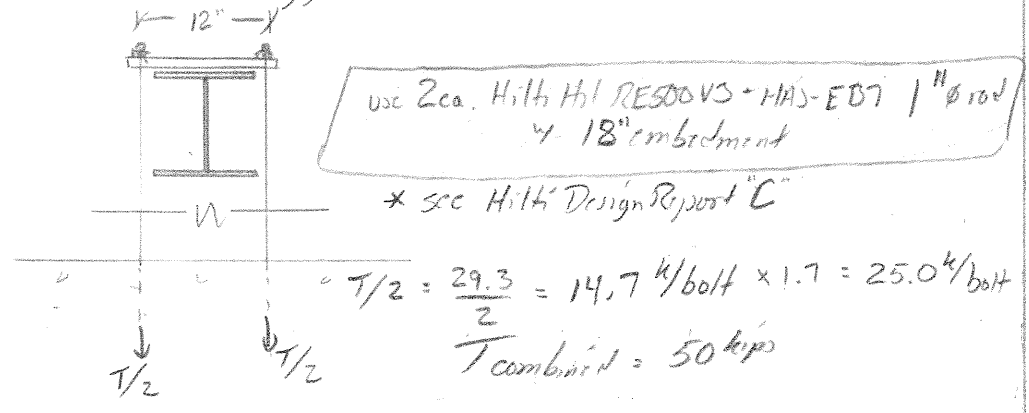 12"
use 2ea. Hilti Hit RE500V3 + HAS-E B7 1"ø rod
w/ 18" embedment
* see Hilti Design Report "C"
T/2 = 29.3/2 = 14.7 k/bolt x 1.7 = 25.0 k/bolt
T combined = 50 kips
T/2
T/2